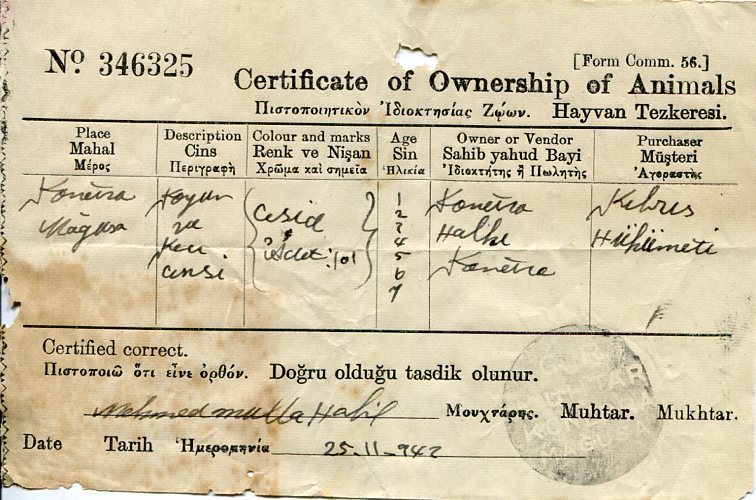 Nº 346325
[Form Comm. 56.]
Certificate of Ownership of Animals
Πιστοποιητικὸν Ἰδιοκτησίας Ζῴων. Hayvan Tezkeresi.
Place Description Colour and marks Age Owner or Vendor Purchaser
Mahal Cins Renk ve Nişan Sin Sahib yahud Bayi Müşteri
Μέρος Περιγραφὴ Χρῶμα καὶ σημεῖα Ἡλικία Ἰδιοκτήτης ἢ Πωλητὴς Ἀγοραστὴς
Konetra Koyun 1 Konetra Kıbrıs
Mağusa ve 2 Halkı Hükümeti
Keci 3 Konetra
cinsi Adet 101 4
5
6
7
Certified correct.
Πιστοποιῶ ὅτι εἶνε ὀρθόν. Doğru olduğu tasdik olunur.
Mehmed Mulla Halil Μουχτάρης. Muhtar. Mukhtar.
Date Tarih Ἡμερομηνία 25-11-942